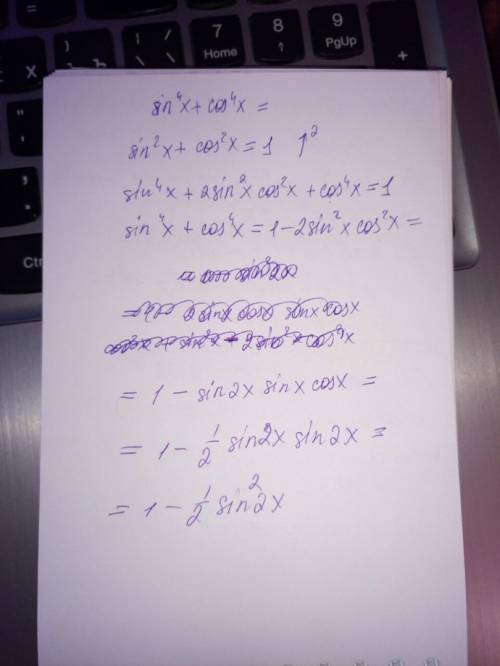 7
Home
8
↑
9
PgUp
+
Ъ
}
Х
/
\
Ctr
sin⁴x + cos⁴x =
sin²x + cos²x = 1 ↑²
sin⁴x + 2sin²x cos²x + cos⁴x = 1
sin⁴x + cos⁴x = 1 - 2sin²x cos²x =
= 1 - sin2x sinx cosx =
= 1 - 1/2 sin2x sin2x =
= 1 - 1/2 sin²2x